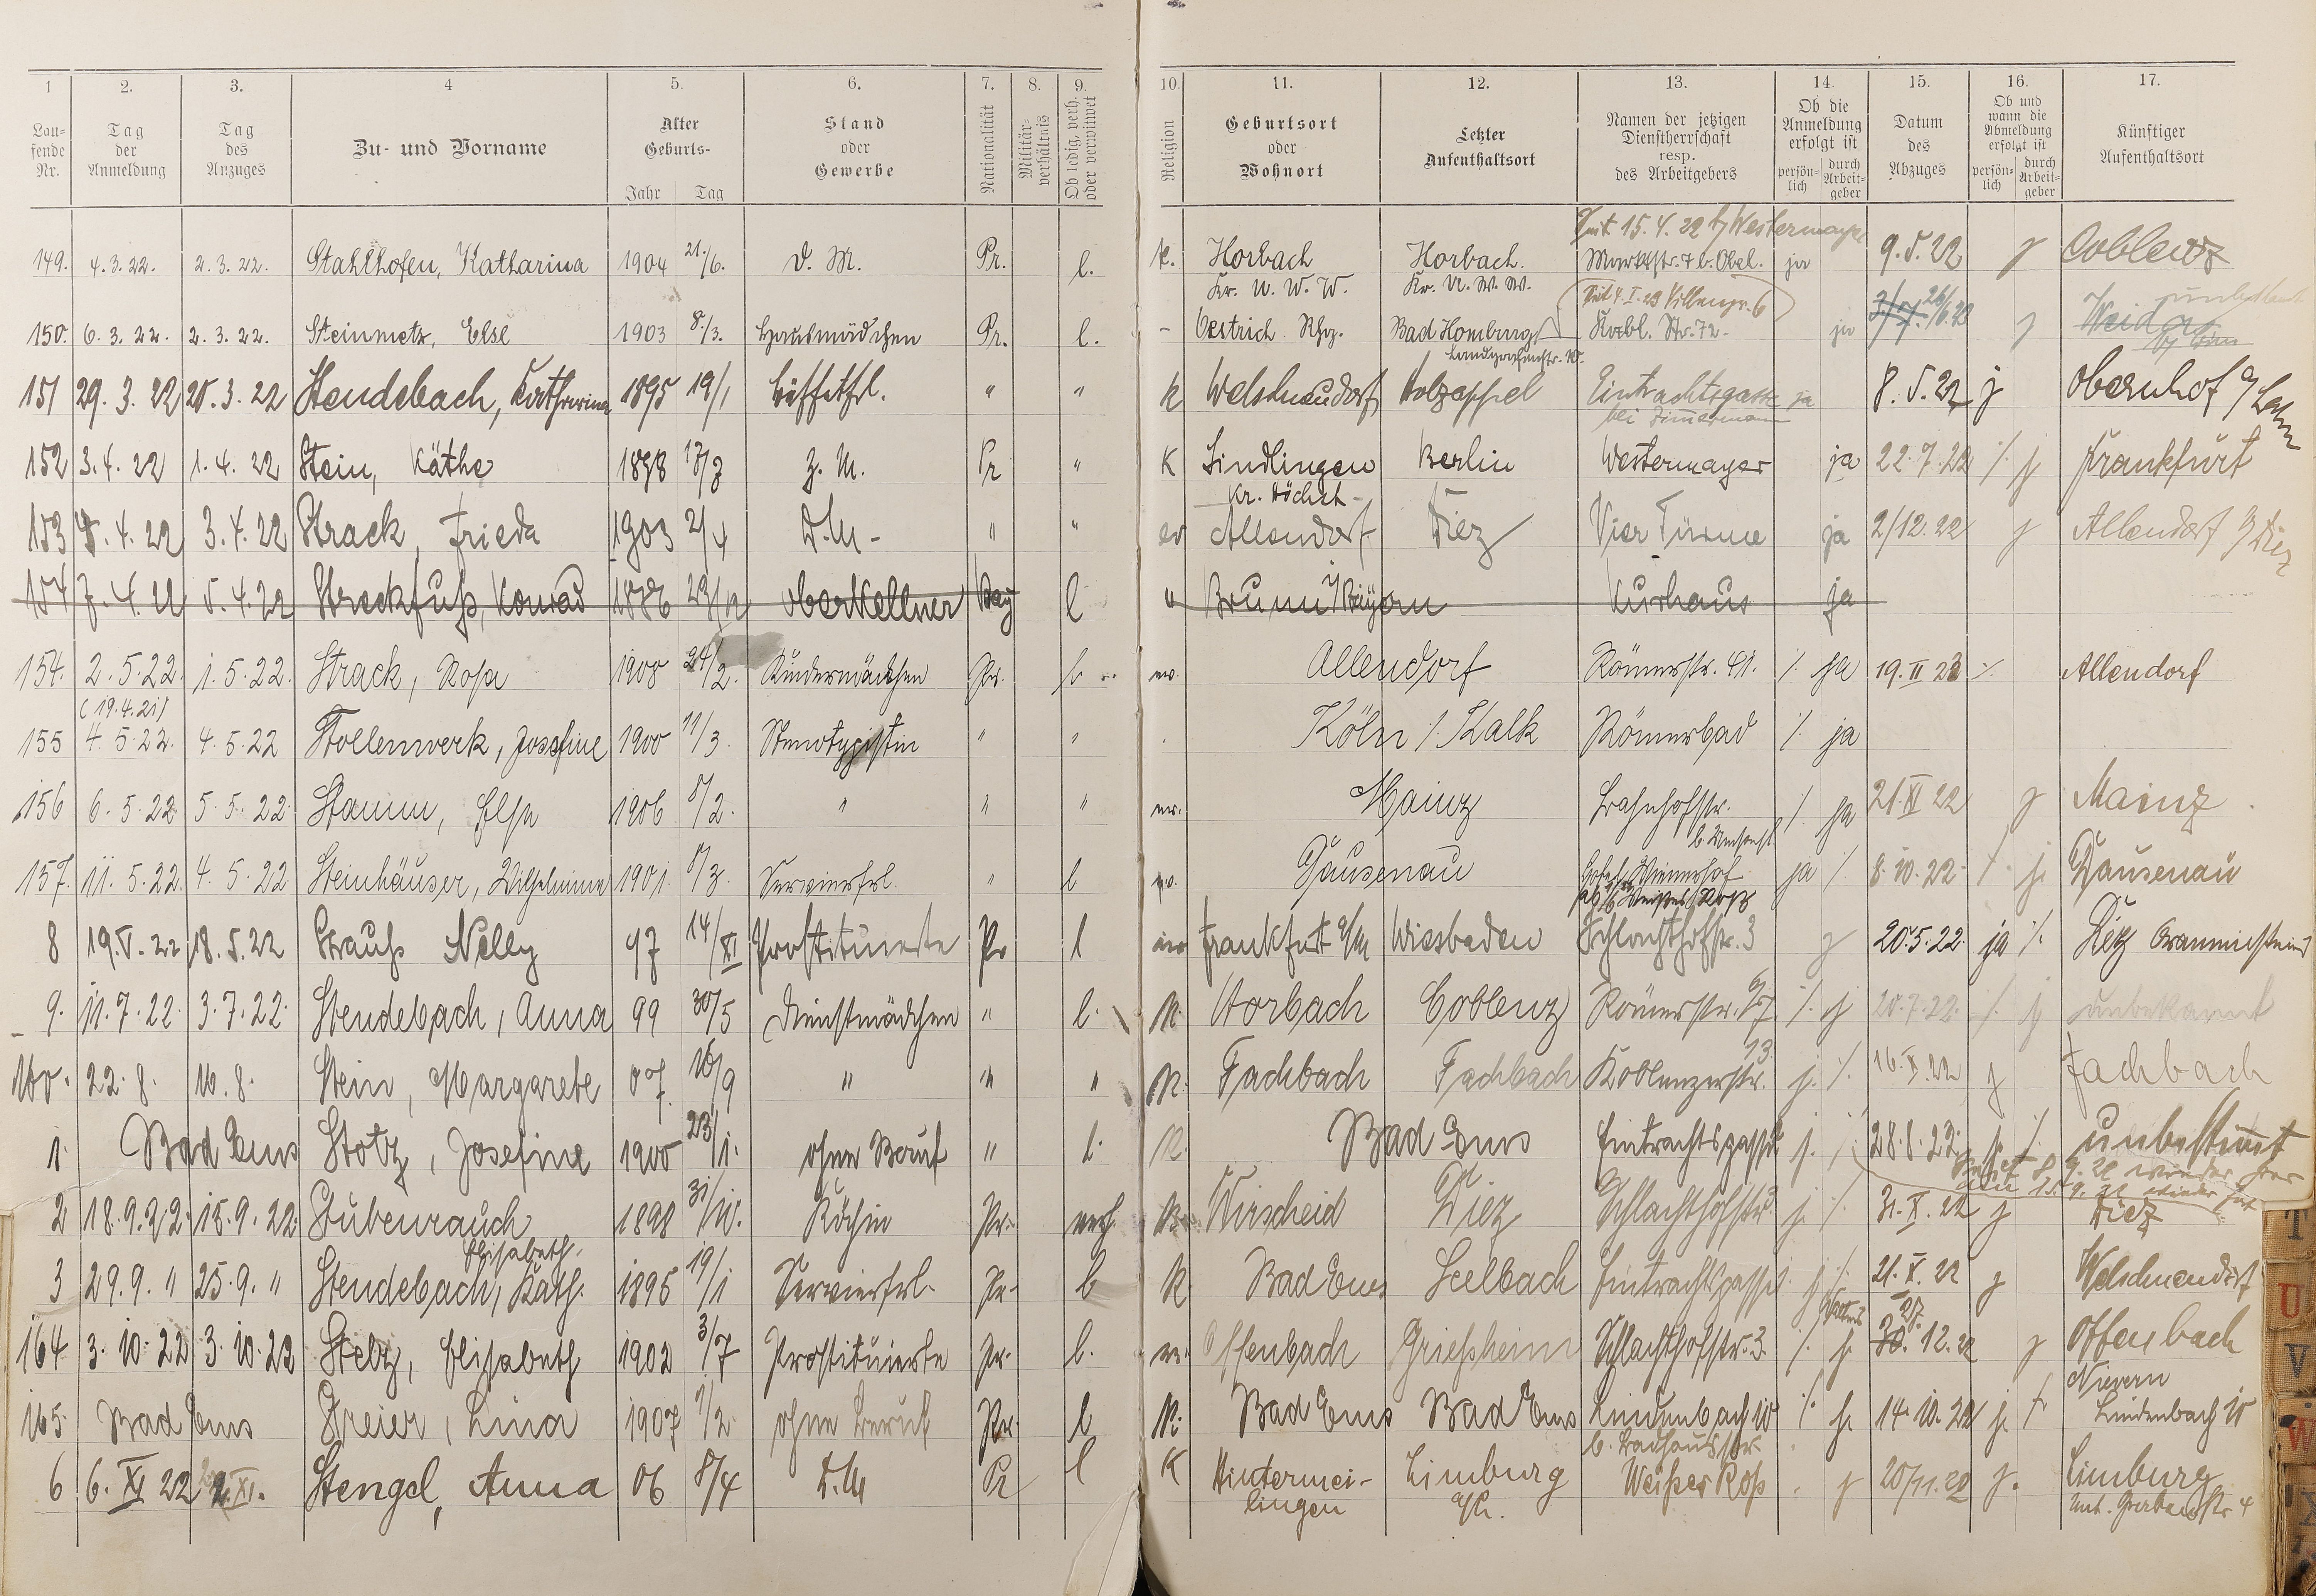 1 2. 3. 4 5. 6. 7. 8. 9. 10. 11. 12. 13. 14. 15. 16. 17.
Lau-
fende
Nr.
Tag
der
Anmeldung
Tag
des
Anzuges
Zu- und Vorname
Alter
Geburts-
Jahr Tag
Stand
oder
Gewerbe
Nationalität
Militär-
verhältnis
Ob ledig, verh.
oder verwitwet
Religion
Geburtsort
oder
Wohnort
Letzter
Aufenthaltsort
Namen der jetzigen
Dienstherrschaft
resp.
des Arbeitgebers
Ob die
Anmeldung
erfolgt ist
persön-
lich
durch
Arbeit-
geber
Datum
des
Abzuges
Ob und
wann die
Abmeldung
erfolgt ist
persön-
lich
durch
Arbeit-
geber
Künftiger
Aufenthaltsort
15.4.22 Westermayer
149. 4.3.22. 2.3.22. Stahlhofen, Katharina 1904 21./6. D. M. Pr. l. K. Horbach Horbach. Marktstr. 7 b. Obel. ja 9.5.22 j Coblenz
Kr. U. W. W. Kr. U. W. W.
150. 6.3.22. 2.3.22. Steinmetz, Else 1903 8./3. Hausmädchen Pr. l. - Oestrich Rhg. Bad Homburg Kobl. Str. 72- ja j
151 29.3.22 20.3.22 Stendebach, Katharina 1895 19/1 Büffetfrl. " " K Welschneudorf Holzappel Eintrachtsgasse ja 8.5.22 j Obernhof a/Lahn
bei Zimmermann
152 3.4.22 1.4.22 Stein, Käthe 1898 Z. M. Pr " K Sindlingen Berlin Westermayer ja 22.7.22 ⁒ j Frankfurt
Kr. Höchst-
153 5.4.22 3.4.22 Strack, Frieda 1903 2/4 D.M- " " ev Allendorf Diez Vier Türme ja 2/12.22 j Allendorf b/Diez
154 7.4.22 5.4.22 Streckfuß, Konrad 1886 23/12 Oberkellner Bay l " Brunn i/Bayern Kurhaus ja
154. 2.5.22. 1.5.22. Strack, Rosa 1908 24/2. Kindermädchen Pr. l ev. Allendorf Römerstr. 41. ⁒ ja 19.II 23 ⁒ Allendorf
(19.4.21)
155 4.5.22. 4.5.22 Stollenwerk, Josefine 1900 11/3. Stenotypistin " " Köln ⁒ Kalk Römerbad ⁒ ja
156 6.5.22 5.5.22. Stamm, Elsa 1906 8/2. " " " ev. Mainz Bahnhofstr. ⁒ ja 21.XI 22 j Mainz
157. 11.5.22. 4.5.22 Steinhäuser, Wilhelmine 1901. 8/3. Servierfrl. " l ev. Dausenau Hotel Wienerhof ja ⁒ 8.10.22. ⁒ j. Dausenau
8 19.V.22 18.5.22 Strauß Nelly 97 14/XI Prostituierte Pr l isr Frankfurt a/M Wiesbaden Schlachthofstr. 3 j 20.5.22. ja ⁒ Diez
9. 11.7.22. 3.7.22. Stendebach, Anna 99 30/5 Dienstmädchen " l. K. Horbach Coblenz Römerstr. ⁒ j 20.7.22. ⁒ j unbekannt
160. 22.8. 16.8. Stein, Margarete 07. 16/9 " " " K. Fachbach Fachbach Koblenzerstr. 13 j. ⁒ 16.X.22 j Fachbach
1. Bad Ems Stotz, Josefine 1900 23/1. ohne Beruf " l. K. Bad Ems Eintrachtsgasse j. ⁒ 28.8.22. j. ⁒ unbestimmt
2 18.9.22. 15.9.22. Stubenrauch 1898 31/10. Köchin Pr. verh. K. Wirscheid Diez Schlachthofstr. j. ⁒ 31.X.22 j Diez
Elisabeth.
3 29.9. " 25.9. " Stendebach, Käth. 1895 19/1 Servierfrl. Pr. l K. Bad Ems Seelbach Eintrachtsgasse j ⁒ 21.X.22 j Welschneudorf
164 3.10.22 3.10.22 Stelz, Elisabeth 1902 3/7 Prostituierte Pr. l. ev. Offenbach Griesheim Schlachthofstr. 3. ⁒ j. 27. 12.22 j Offenbach
Nievern
165. Bad Ems Dreier, Lina 1907 1/2. ohne Beruf Pr. l K. Bad Ems Bad Ems Lindenbach 10 ⁒ j. 14.10.22 j. ⁒ Lindenbach 10
b. Badhausstr.
6 6.XI 22 2.XI. Stengel, Anna 06 8/4 D.M Pr l K Hintermei- Limburg Weißes Roß j 20/11.22 j. Limburg
lingen a/L.
T
U
V
W
X